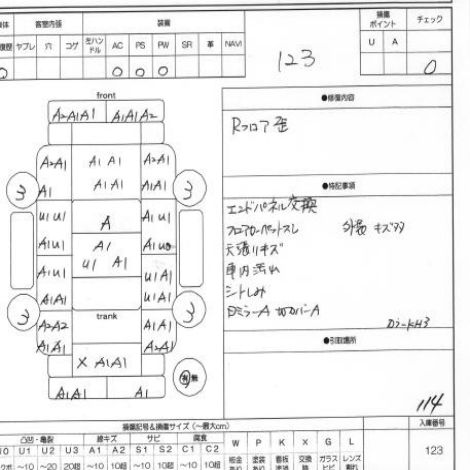 客室内張
装備
損傷
ポイント
チェック
ヤブレ 穴 コゲ 左ハンドル AC PS PW SR 革 NAVI
U A
○ ○ ○ ○
123
○
front
A2A1A1 A1A1A2
●修復内容
Rフロア歪
A2A1 A1 A1 A2A1
A1 A1 A1 A1A1
3 3
●特記事項
エンドパネル交換
フロアカーペットスレ 外装 キズ
天張リキズ
車内汚れ
シートしみ
U1 U1 A A1 U1
A1U1 A1 A1
U1 A1
A1U1 U1A1
A1A1 U1A1
3 3
trank
A2A2 A1A1
A1A1 A2A1
X A1A1
有 無
A1A1 A1
●引取場所
114
損傷記号&損傷サイズ(~最大cm)
入庫番号
凹凸・亀裂 線キズ サビ 腐食
U1 U2 U3 A1 A2 S1 S2 C1 C2 W P K X G L
123
~10 ~20 20超 ~10 10超 ~10 10超 ~10 10超 板金 塗装 看板 交換 ガラス レンズ